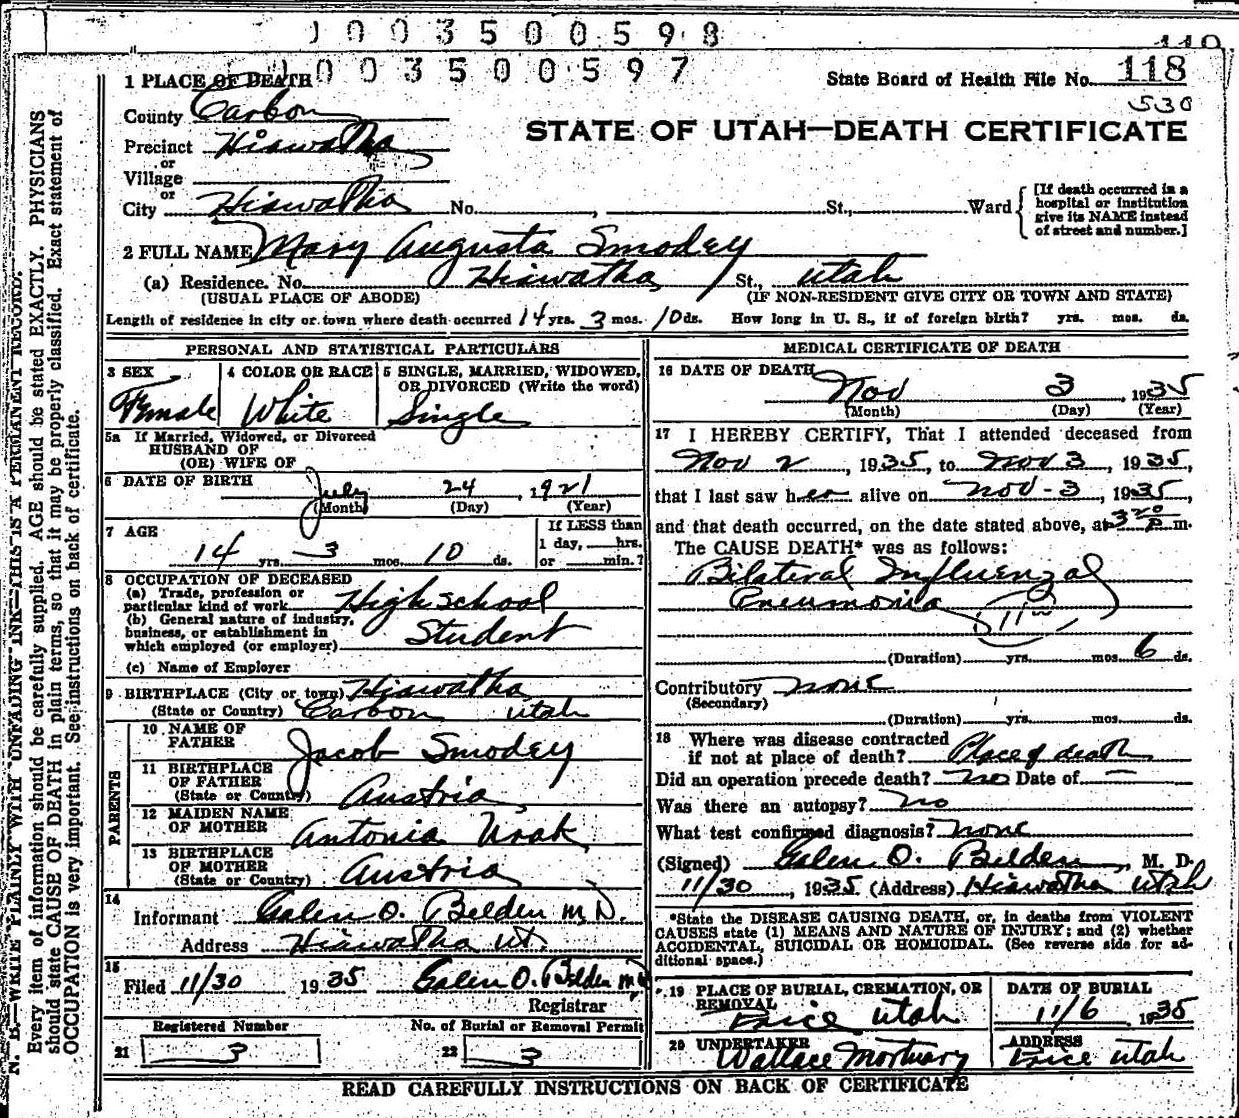 1003500598
1003500597
119
1 PLACE OF DEATH
State Board of Health File No. 118
530
County Carbon
STATE OF UTAH—DEATH CERTIFICATE
Precinct Hiawatha
or
Village
or
City Hiawatha No. , St., Ward
[If death occurred in a hospital or institution give its NAME instead of street and number.]
2 FULL NAME Mary Augusta Smodey
(a) Residence. No. Hiawatha St., Utah
(USUAL PLACE OF ABODE) (IF NON-RESIDENT GIVE CITY OR TOWN AND STATE)
Length of residence in city or town where death occurred 14 yrs. 3 mos. 10 ds. How long in U. S., if of foreign birth? yrs. mos. ds.
PERSONAL AND STATISTICAL PARTICULARS
3 SEX
Female
4 COLOR OR RACE
White
5 SINGLE, MARRIED, WIDOWED,
OR DIVORCED (Write the word)
Single
5a If Married, Widowed, or Divorced
HUSBAND OF
(OR) WIFE OF
6 DATE OF BIRTH July 24, 1921
(Month) (Day) (Year)
7 AGE
14 yrs. 3 mos. 10 ds.
If LESS than
1 day, hrs.
or min.?
8 OCCUPATION OF DECEASED
(a) Trade, profession or
particular kind of work High school
(b) General nature of industry,
business, or establishment in
which employed (or employer) Student
(c) Name of Employer
9 BIRTHPLACE (City or town) Hiawatha
(State or Country) Carbon Utah
PARENTS
10 NAME OF
FATHER Jacob Smodey
11 BIRTHPLACE
OF FATHER
(State or Country) Austria
12 MAIDEN NAME
OF MOTHER Antonia
13 BIRTHPLACE
OF MOTHER
(State or Country) Austria
14
Informant Galen O. Belden M.D.
Address Hiawatha Ut.
15
Filed 11/30 1935 Galen O. Belden M.D.
Registrar
Registered Number
21 3
No. of Burial or Removal Permit
22 3
MEDICAL CERTIFICATE OF DEATH
16 DATE OF DEATH
Nov 3, 1935
(Month) (Day) (Year)
17 I HEREBY CERTIFY, That I attended deceased from
Nov 2, 1935, to Nov 3, 1935,
that I last saw her alive on Nov-3, 1935,
and that death occurred, on the date stated above, at 3 20 P m.
The CAUSE DEATH* was as follows:
Bilateral Influenzal
Pneumonia
(Duration) yrs. mos. 6 ds.
Contributory none
(Secondary)
(Duration) yrs. mos. ds.
18 Where was disease contracted
if not at place of death? Place of death
Did an operation precede death? no Date of —
Was there an autopsy? no
What test confirmed diagnosis? none
(Signed) Galen O. Belden, M. D.
11/30, 1935 (Address) Hiawatha Utah
*State the DISEASE CAUSING DEATH, or, in deaths from VIOLENT
CAUSES state (1) MEANS AND NATURE OF INJURY; and (2) whether
ACCIDENTAL, SUICIDAL OR HOMICIDAL. (See reverse side for ad-
ditional space.)
19 PLACE OF BURIAL, CREMATION, OR
REMOVAL
Price Utah
DATE OF BURIAL
11/6 1935
20 UNDERTAKER
Wallace Mortuary
ADDRESS
Price Utah
READ CAREFULLY INSTRUCTIONS ON BACK OF CERTIFICATE
N. B.—WRITE PLAINLY WITH UNFADING INK—THIS IS A PERMANENT RECORD.
Every item of information should be carefully supplied. AGE should be stated EXACTLY. PHYSICIANS
should state CAUSE OF DEATH in plain terms, so that it may be properly classified. Exact statement of
OCCUPATION is very important. See instructions on back of certificate.